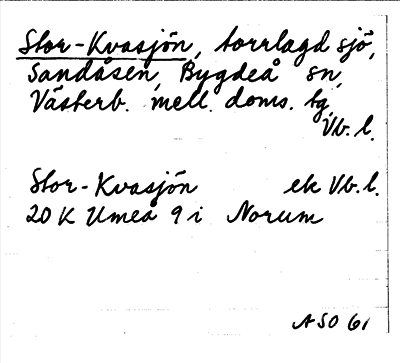 Stor-Kvasjön, torrlagd sjö,
Sandåsen, Bygdeå sn,
Västerb. mell. doms. tg,
Vb. l.
Stor-Kvasjön ek Vb. l.
20 K Umeå 9 i Norum
ASO 61